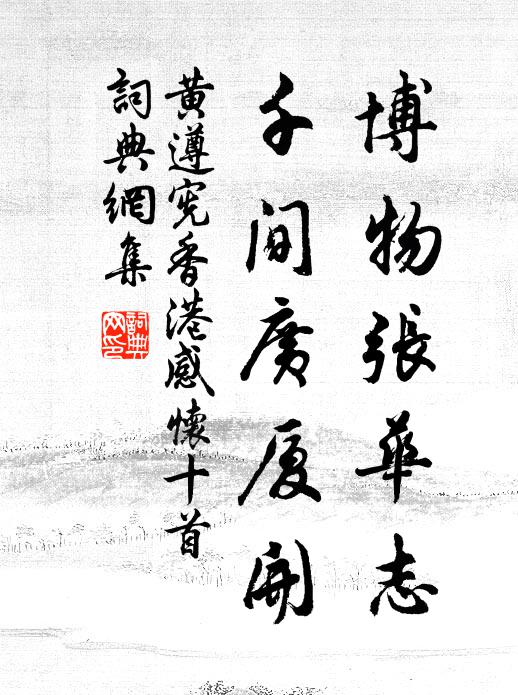 博物張華志
千間廣厦開
黃遵宪香港感懷十首
詞典網集
詞典網印